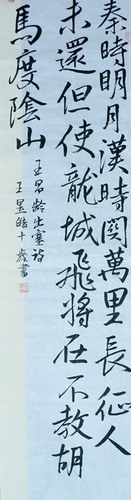 秦時明月漢時関萬里長征人
未還但使龍城飛將在不教胡
馬度陰山
王昌齡出塞詩
王星皓十歲書